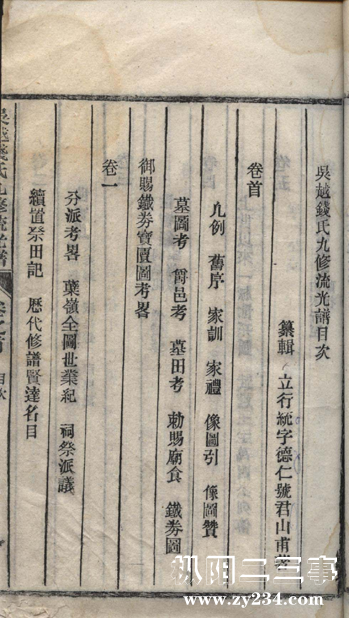 吳越錢氏九修流光譜目次
纂輯 立行統字德仁號君山甫
卷首
凡例 舊序 家訓 家禮 像圖引 像圖贊
墓圖考 爵邑考 墓田考 勅賜廟食 鐵券圖
御賜鐵券寶賈圖考畧
卷一
分派考畧 葉嶺全圖世業紀 祠祭派議
續置祭田記 歷代修譜賢達名目
吳越錢氏九修流光譜
目次
枞阳二三事
www.zy234.com